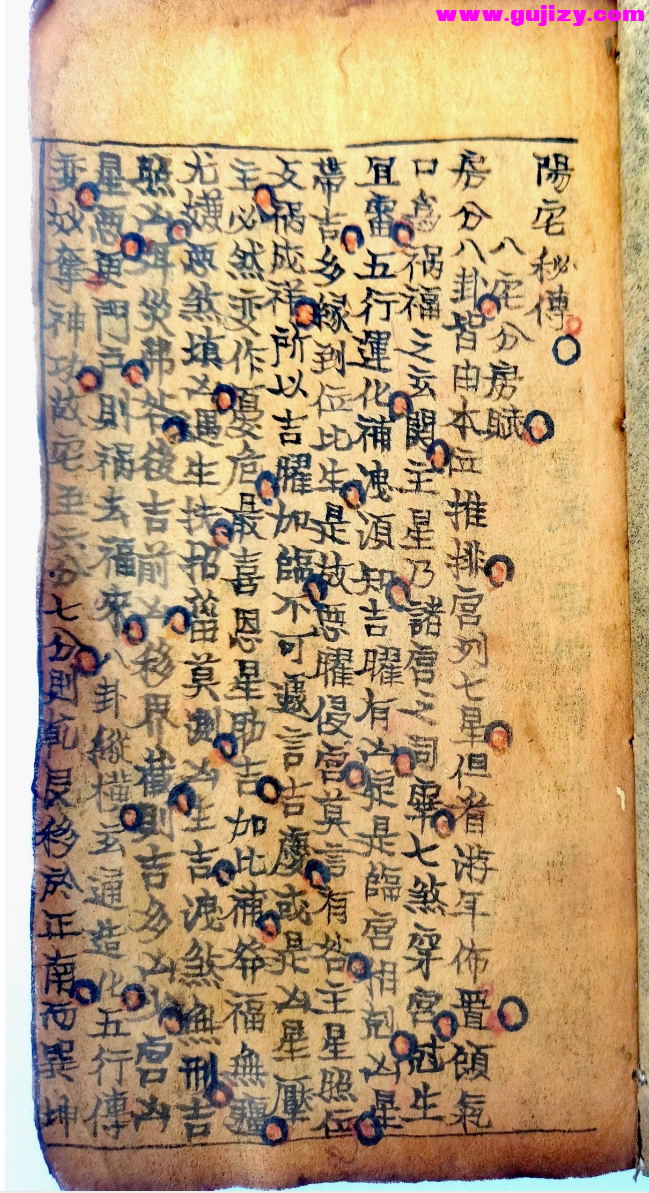 www.gujizy.com
陽宅秘傳
八宅分房賦
房分八卦皆由本位推排宮列七星但看游年佈置領氣
口爲禍福之玄関主星乃諸宮之詞 七煞穿宮尅生
宜審五行運化補洩須知吉曜有凶是臨宮相尅凶星
帶吉多緣到位比生是故悪曜侵宮莫言有咎主星照位
反禍成祥所以吉曜加臨不可遽言吉慶或是凶星壓
主必然变作憂危最喜恩星助吉加比補 福無疆
尤嫌悪煞填凶遇生扶招菑莫測凶生吉洩煞無刑吉
照凶 災 咎後吉前凶移界截則吉多凶少宮凶
星悪更門戶則禍去福來八卦縱橫玄通造化五行傳
变妙奪神功故宅 六分七分則乾艮移於正南而巽坤